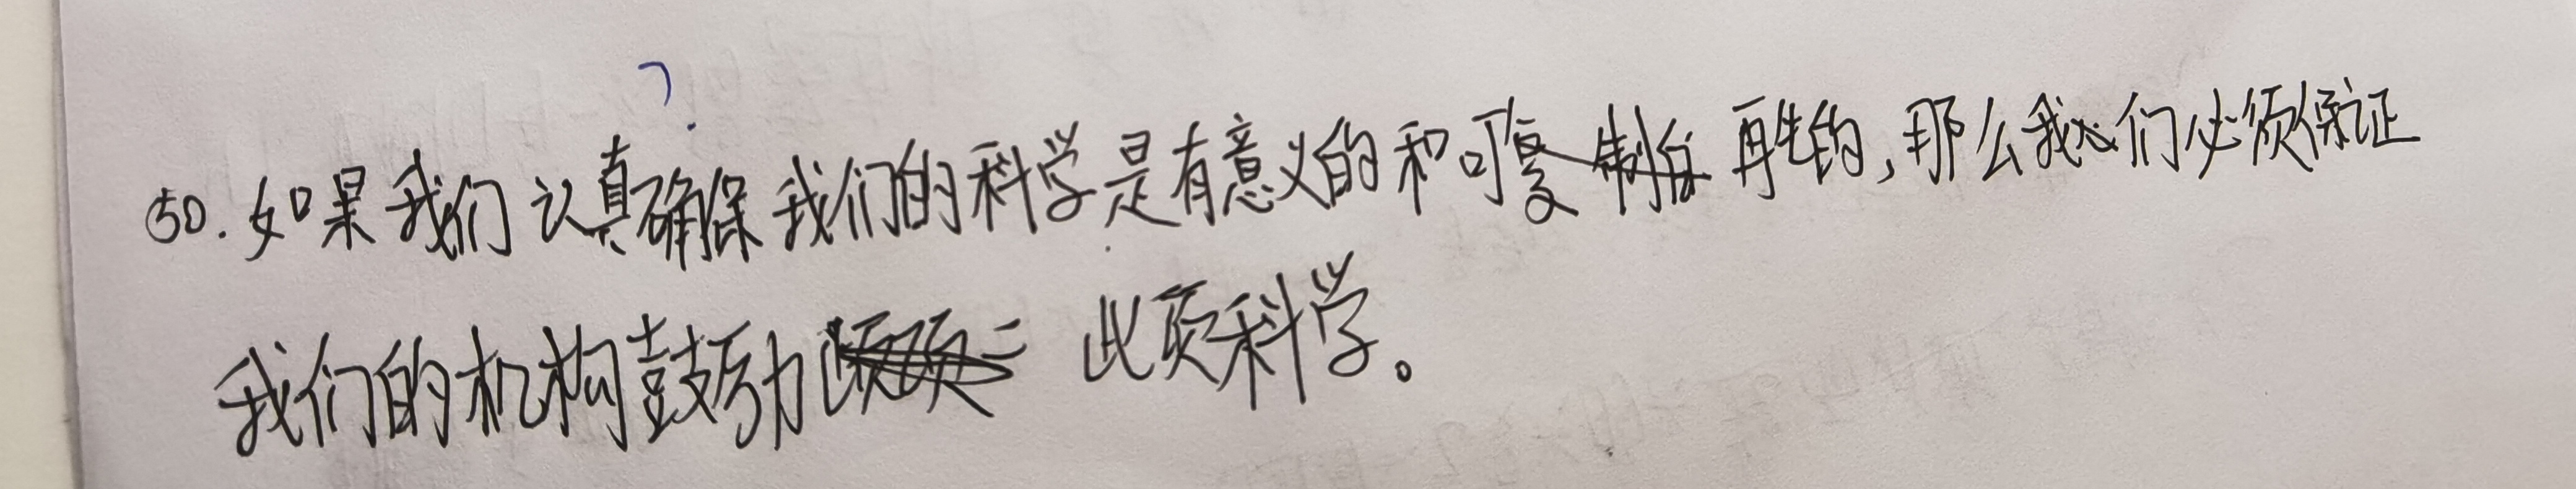 ?
50. 如果我们认真确保我们的科学是有意义的和可再生的,那么我们必须保证
我们的机构鼓励 此项科学。